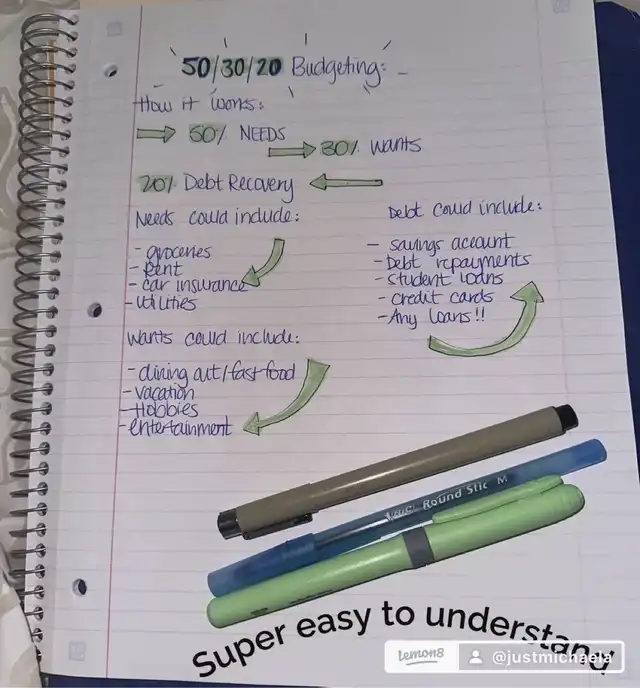 50/30/20 Budgeting:
How it works:
50% NEEDS
30% wants
20% Debt Recovery
Needs could include:
- groceries
- Rent
- car insurance
- utilities
Debt could include:
- savings account
- Debt repayments
- student loans
- credit cards
- Any loans!!
Wants could include:
- dining out/fast food
- vacation
- Hobbies
- entertainment
BIC Round Stic M
Super easy to understand
lemon8
@justmichaela